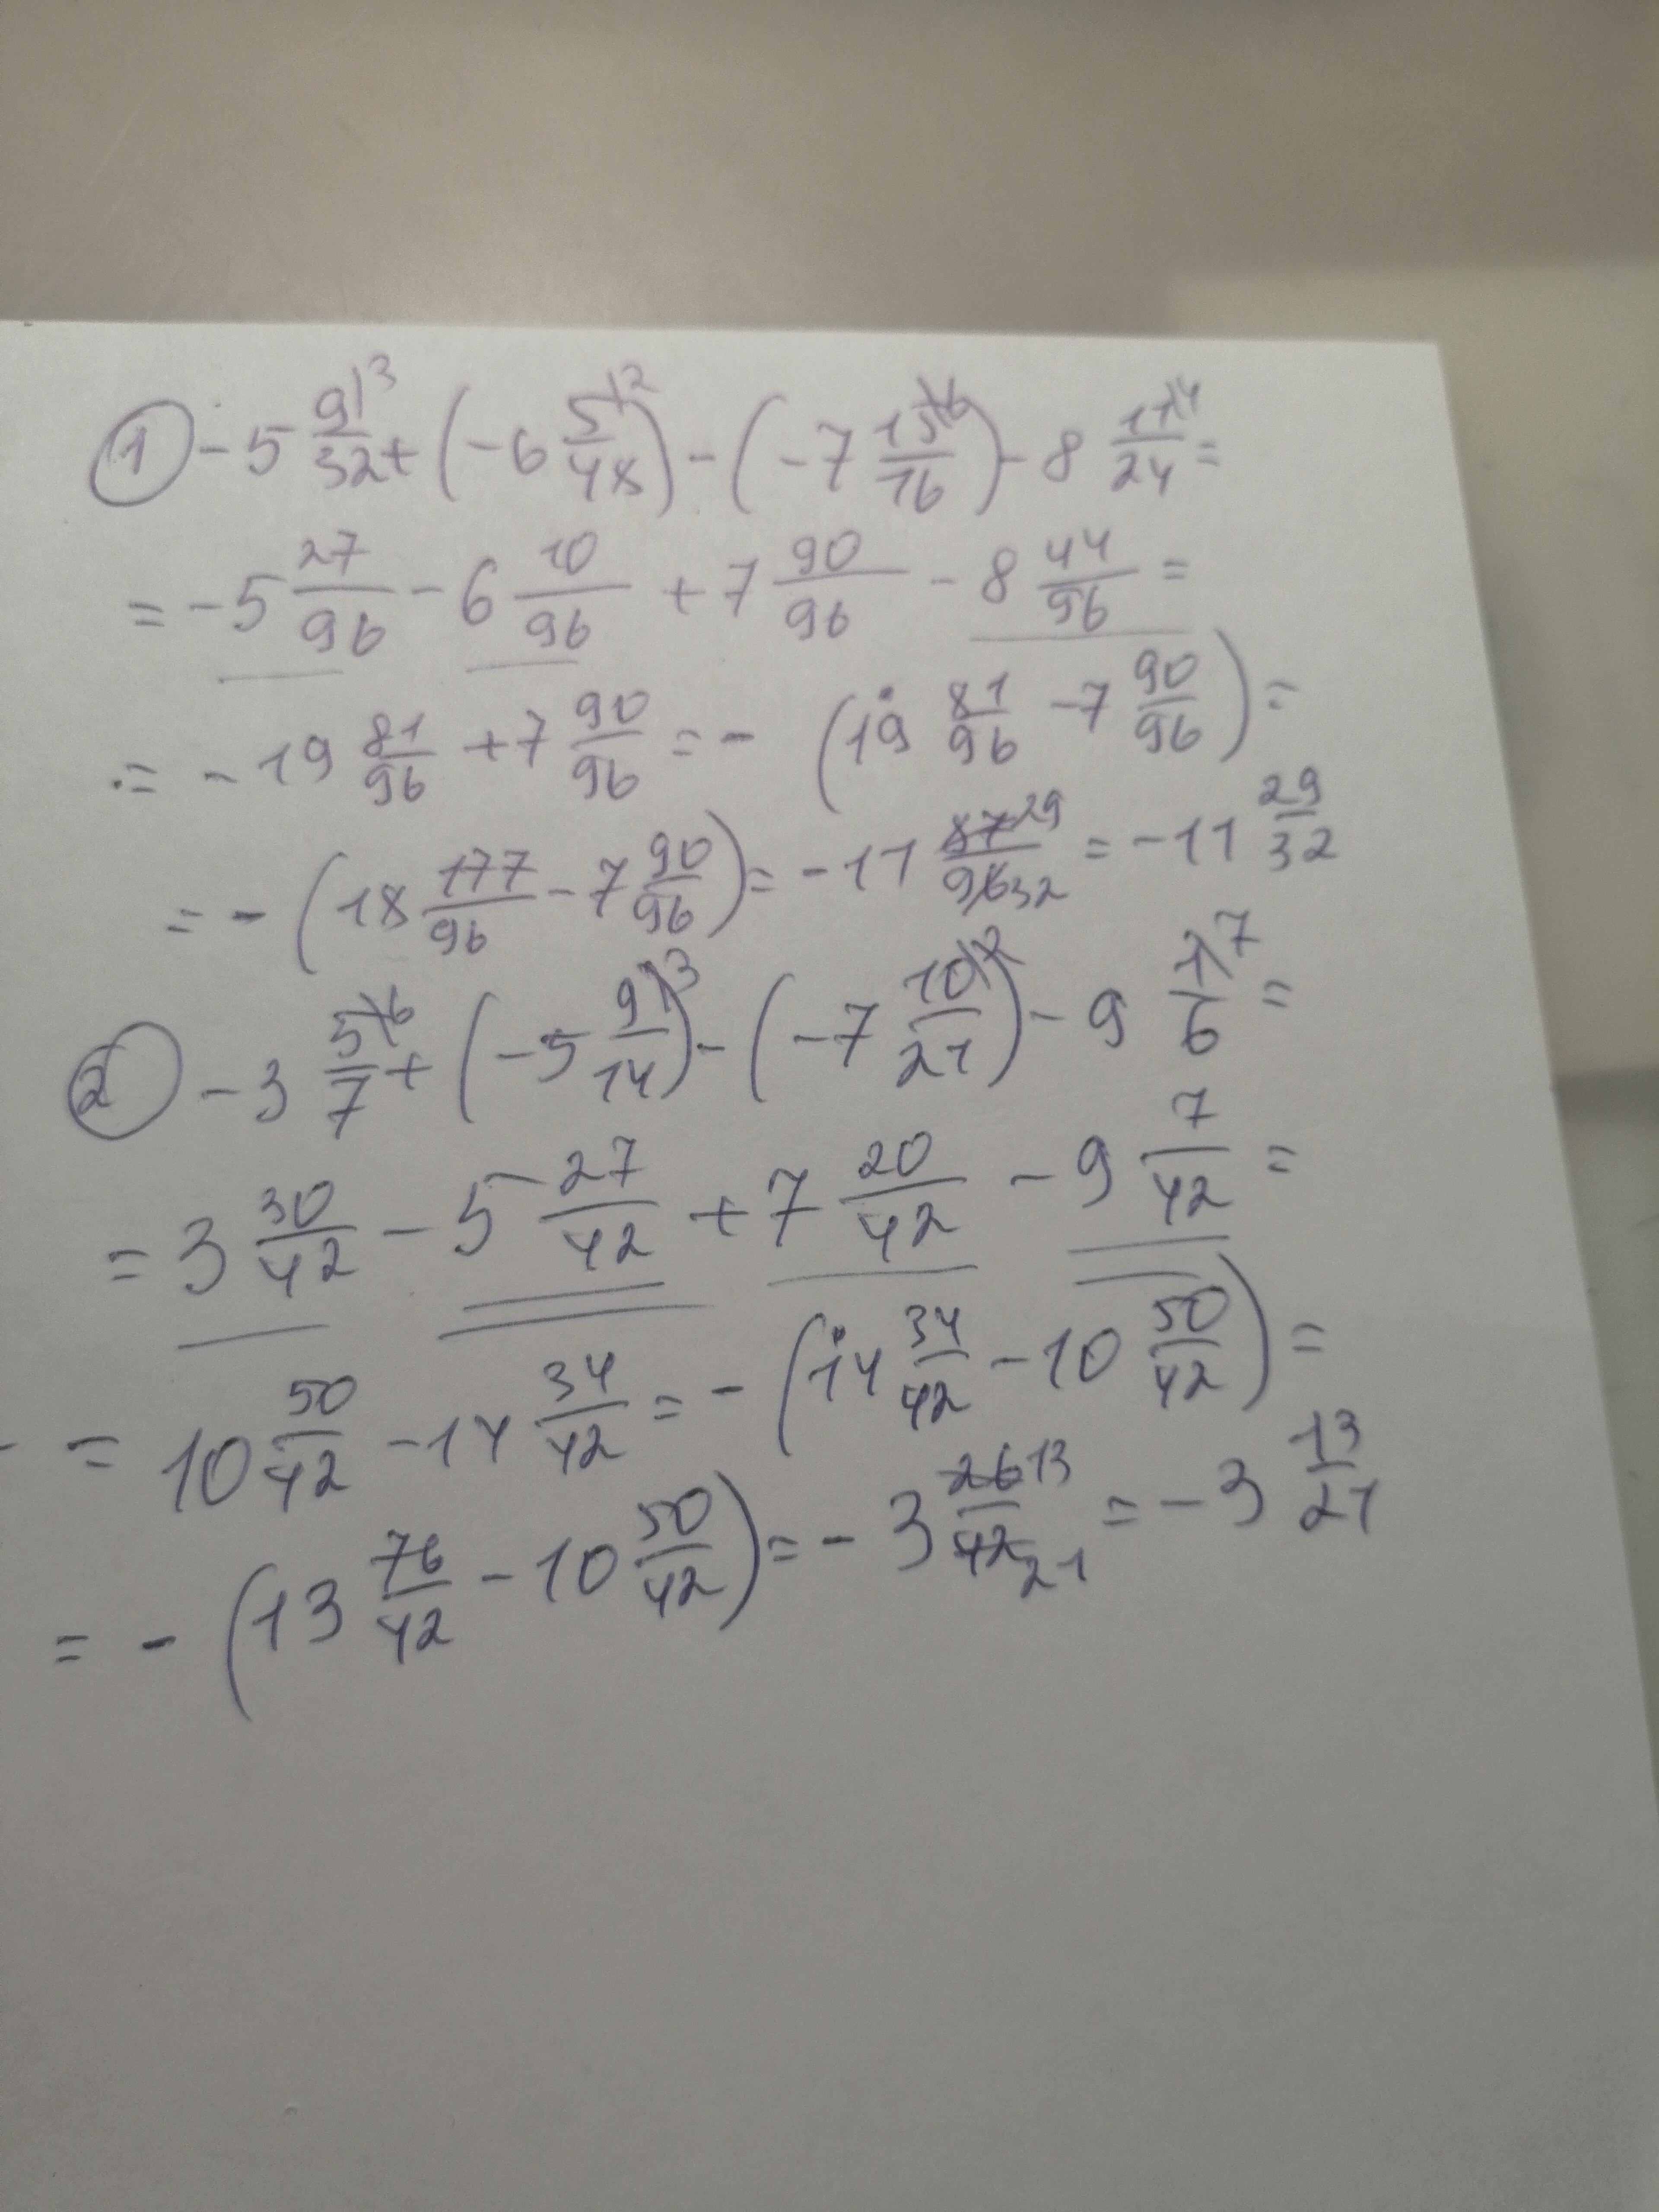 ① -5 9\3/32 + (-6 5\2/48) - (-7 15\6/16) - 8 11\4/24 =
= -5 27/96 - 6 10/96 + 7 90/96 - 8 44/96 =
= -19 81/96 + 7 90/96 = - (19 81/96 - 7 90/96) =
= - (18 177/96 - 7 90/96) = -11 87 29/96 32 = -11 29/32
② -3 5\6/7 + (-5 9\3/14) - (-7 10\2/21) - 9 1\7/6 =
= 3 30/42 - 5 27/42 + 7 20/42 - 9 7/42 =
= 10 50/42 - 14 34/42 = - (14 34/42 - 10 50/42) =
= - (13 76/42 - 10 50/42) = -3 26 13/42 21 = -3 13/21